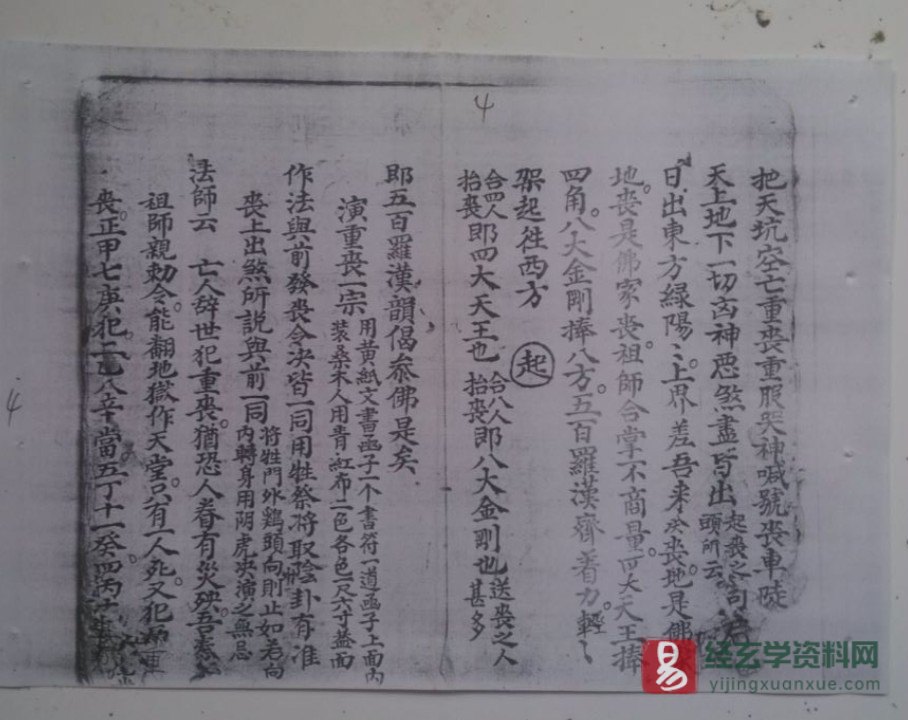 4
把天坑空亡重喪重服哭神喊號喪車陡
天上地下一切凶神惡煞盡皆出 起喪之句 頭所云
日出東方緑陽〻上界差吾来 喪地是佛
地喪是佛家喪祖師合掌不商量四大天王捧
四角八大金剛捧八方五百羅漢齊着力輕〻
架起徃西方 起
合四人抬喪即四大天王也 合八人抬喪即八大金剛也 送喪之人甚多
即五百羅漢韻偈叅佛是矣
演重喪一宗 用黄紙文書函子一个書符一道函子上面内 装桑木人用青紅布二色各色一尺六寸蓋面
作法與前發喪令决皆一同用牲祭将取陰卦有准
喪上出煞所説與前一同 将牲門外鷄頭向則止如若向 内轉身用阴虎决演之無忌
法師云 亡人辞世犯重喪猶恐人眷有災殃吾奉
祖師親勅令能翻地獄作天堂只有一人死又犯 重
喪正甲七庚犯二乙八辛當五丁十一癸四丙十
4
易
经玄学资料网
yijingxuanxue.com